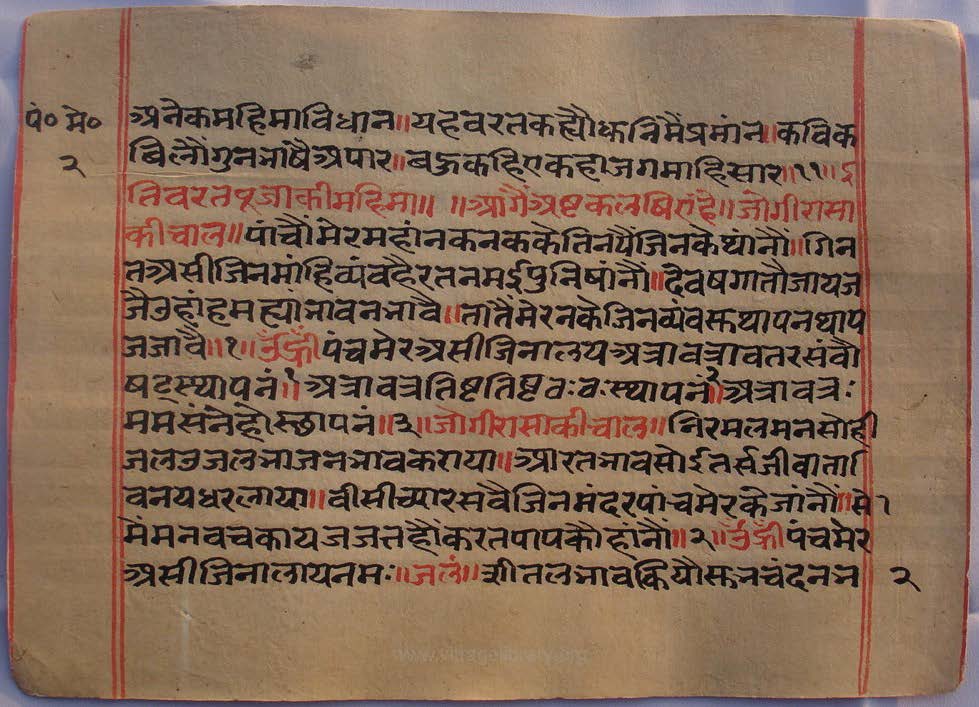 पं० मे० अनेकमहिमाविधान॥यहवरतकह्यौध्वनिमैंप्रमांन॥कविक
२ बिलौंगुनभाषैअपार॥बहुकहिएकहाजगमाहिसार॥११॥इ
तिवरतपूजाकीमहिमा॥ ॥आगैंअष्टकलषिएहै॥जोगीरासा
कीचाल॥पांचौंमेरमहांनकनककेतिनपैंजिनकेथांनौं॥गिन
तअसीजिनमांहिव्यंवहैरतनमईपुनिषांनौं॥देवषगातौजायज
जैउहांहमह्यांभावनभावै॥तांतैंमेरनकेजिनव्यंवस्तथापनथाप
जजावै॥१॥ॐह्रीपंचमेरअसीजिनालयअत्रावत्रावतरसंवौ
षट्स्थापनं॥१अत्रावत्रतिष्टतिष्टवःवःस्थापनं॥२अत्रावत्रः
ममसंनेहौस्छापनं॥३॥जोगीरासाकीचाल॥निरमलमनसोही
जलउजलभाजनभावकराया॥आरतभावसोईतर्सजीवार्ता
वनयधरलाया॥वीसीच्यारसवैजिनमंदरपांचमेरकेजांनौं॥से१
मेंमनवचकायजजतहौंकरतपापकौहांनौं॥२॥ॐह्रीपंचमेर
असीजिनालायनमः॥जलं॥सीतलभावकियौस्तनचंदनभ २